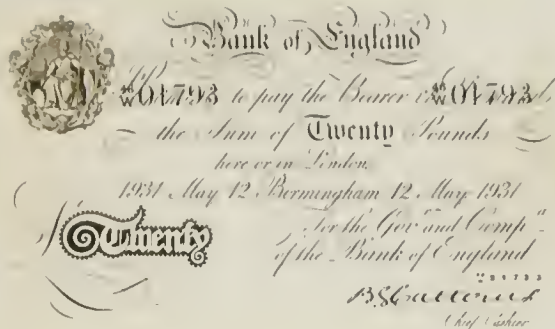 Bank of England
01793 to pay the Bearer 01793
the Sum of Twenty Pounds
here or in London
1931 May 12 Birmingham 12 May 1931
For the Govr and Compa
Twenty
of the Bank of England
Chief Cashier